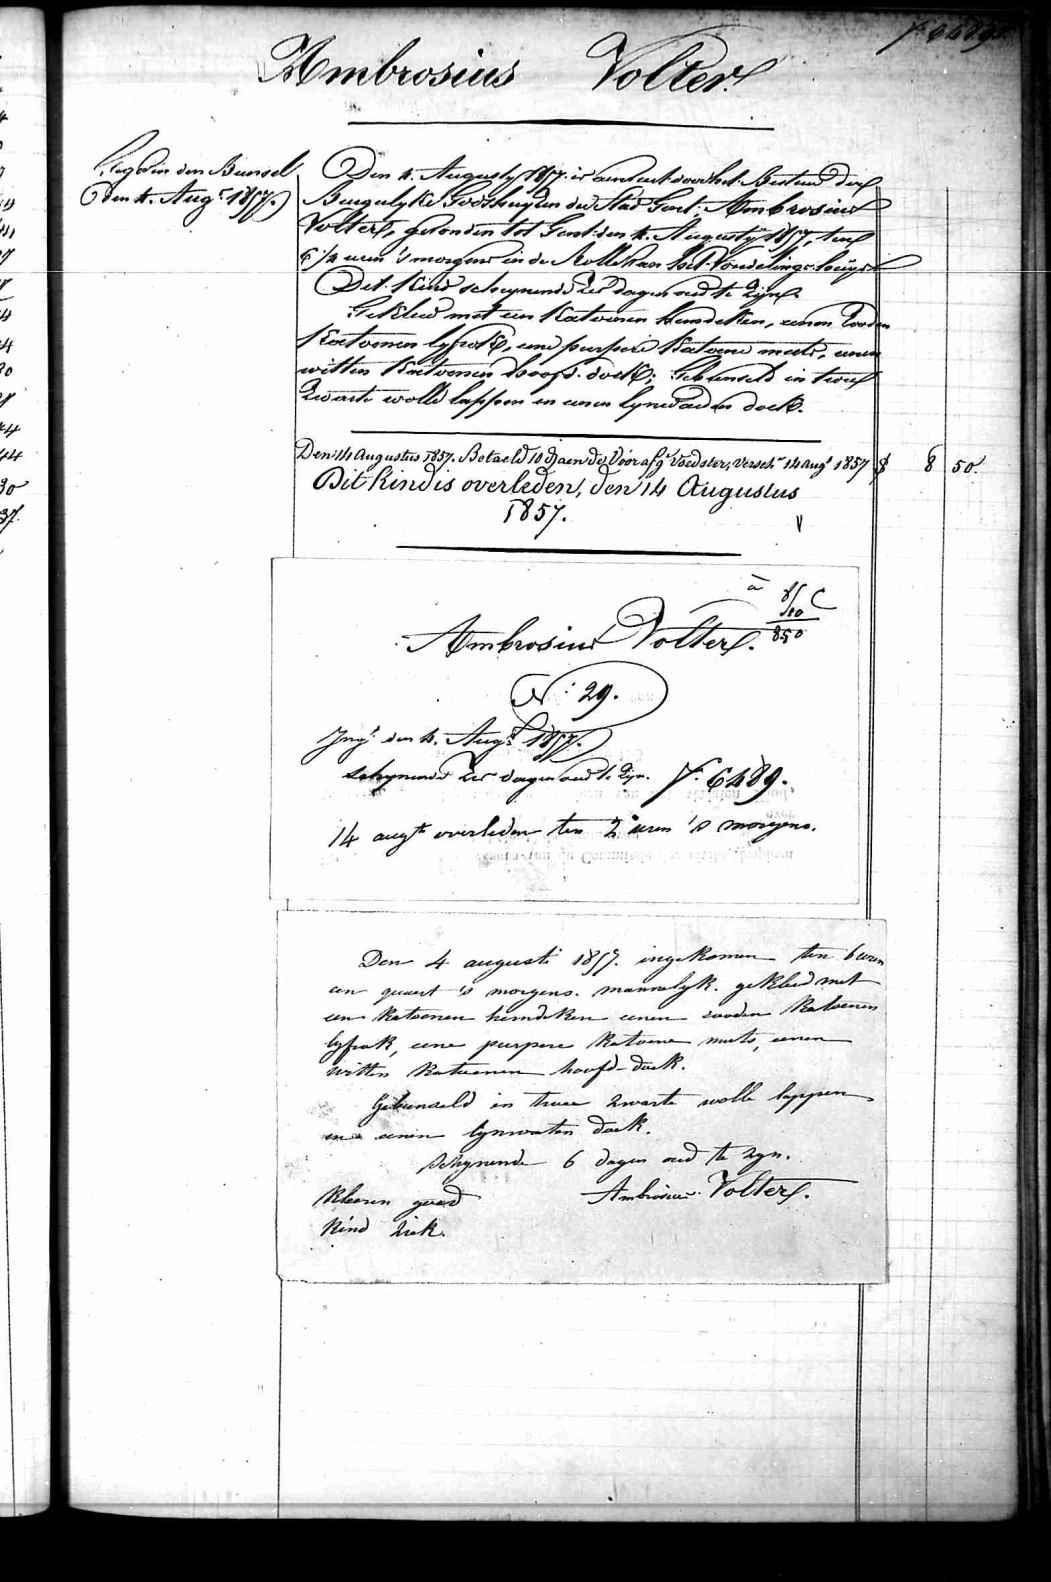 F. 6489.
Ambrosius Volter.
Gegeven den Bunsel
Den 4. Aug.t 1857.
Den 4. Augusty 1857. is aenveert door het Bestuur der
Burgerlyke Godshuyzen der Stad Gent: Ambrosius
Volter, gevonden tot Gent den 4. Augusty 1857, ten
6 1/4 uren 's morgens in de Rolle van het Vondelings-huys.
Dit Kind schynende Zes dagen oud te Zyn.
Gekleed met een Katoenen hemdeken, eenen Rooden
Katoenen lyfrok, eene purpere Katoene muts, eenen
witten Katoenen hoofd-doek; Gebunseld in twee
Zwarte wolle lappen en eenen lynwaden doek.
Den 14 Augustus 1857. Betaeld 10 d) aen de Voorafg.e Voedster, versch.n 14 aug.t 1857 8 50
Dit Kind is overleden, den 14 Augustus
1857.
à 85 C
10
850
Ambrosius Volter.
N.: 29.
Ing.t den 4. Aug.t 1857.
schynende Zes dagen oud te Zyn. F. 6489.
14 aug.ts overleden ten 2 uren 's morgens.
Den 4 augusti 1857. ingekomen ten 6 uren
en quaert 's morgens. mannelyk. gekleed met
een Katoenen hemdeken eenen rooden Katoenen
lyfrok, eene purpere Katoene muts, eenen
witten Katoenen hoofd-doek.
Gebunseld in twee zwarte wolle lappen
en eenen lynwaten doek.
Schynende 6 dagen oud te zyn.
Kleeren goed Ambrosius Volter.
Kind ziek.